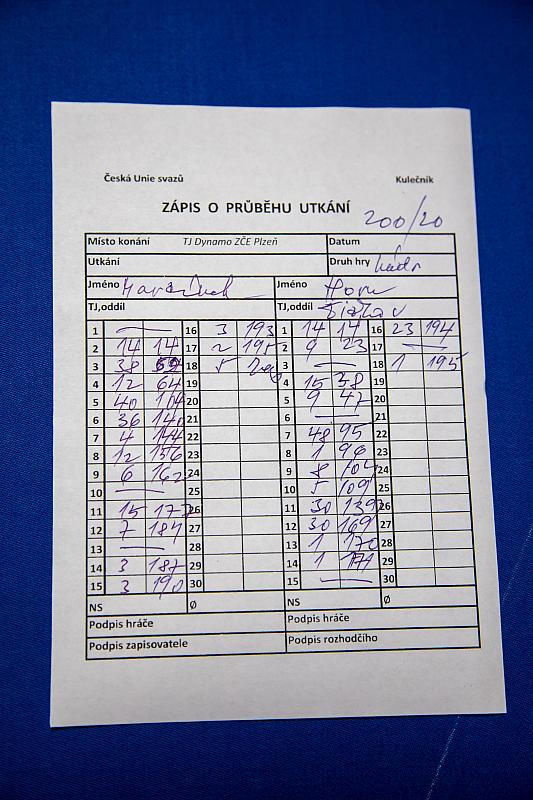 Česká Unie svazů Kulečník
ZÁPIS O PRŮBĚHU UTKÁNÍ 200/20
Místo konání TJ Dynamo ZČE Plzeň Datum
Utkání Druh hry kádr
Jméno Jméno
TJ,oddíl TJ,oddíl
1 — 16 3 193 1 14 14 16 23 194
2 14 14 17 2 195 2 9 23 17 —
3 38 18 5 3 — 18 1 195
4 12 64 19 4 15 38 19
5 40 104 20 5 9 47 20
6 36 140 21 6 — 21
7 4 144 22 7 48 95 22
8 12 156 23 8 1 96 23
9 6 162 24 9 8 104 24
10 — 25 10 5 109 25
11 15 177 26 11 30 139 26
12 7 184 27 12 30 169 27
13 — 28 13 1 170 28
14 3 187 29 14 1 171 29
15 3 190 30 15 — 30
NS Ø NS Ø
Podpis hráče Podpis hráče
Podpis zapisovatele Podpis rozhodčího